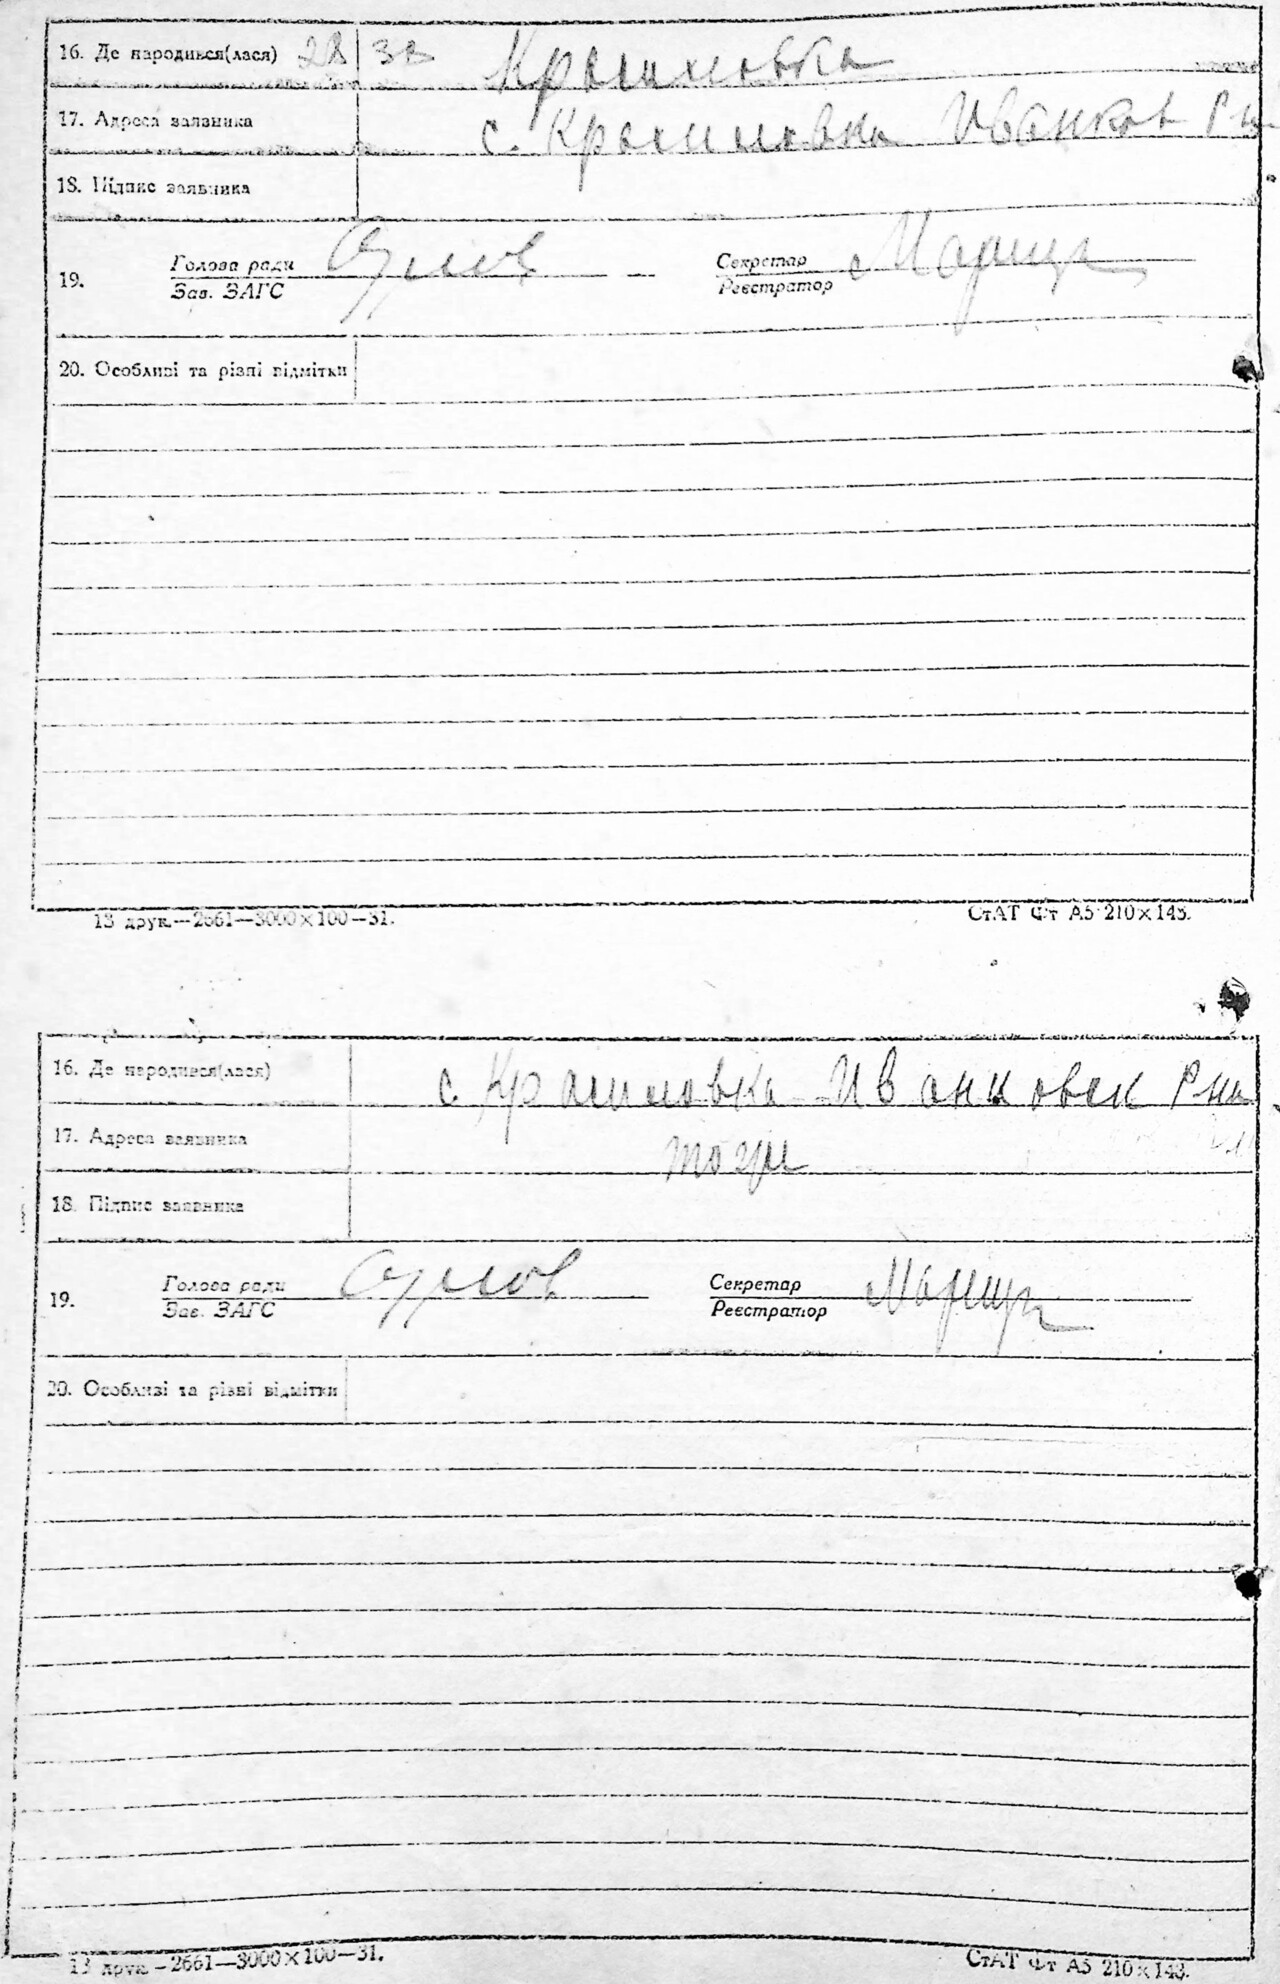 16. Де народився(лася) 2В 3В Красиловка
17. Адреса заявника с. Красиловка Иванков Р на
18. Підпис заявника
19. Голова ради Секретар
Зав. ЗАГС Реєстратор
20. Особливі та різні відмітки
13 друк.—2661—3000×100—31. СтАТ Фт А5 210×148.
16. Де народився(лася) с Красиловка Иванковск Р на
17. Адреса заявника тоже
18. Підпис заявника
19. Голова ради Секретар
Зав. ЗАГС Реєстратор
20. Особливі та різні відмітки
13 друк.—2661—3000×100—31. СтАТ Фт А5 210×148.